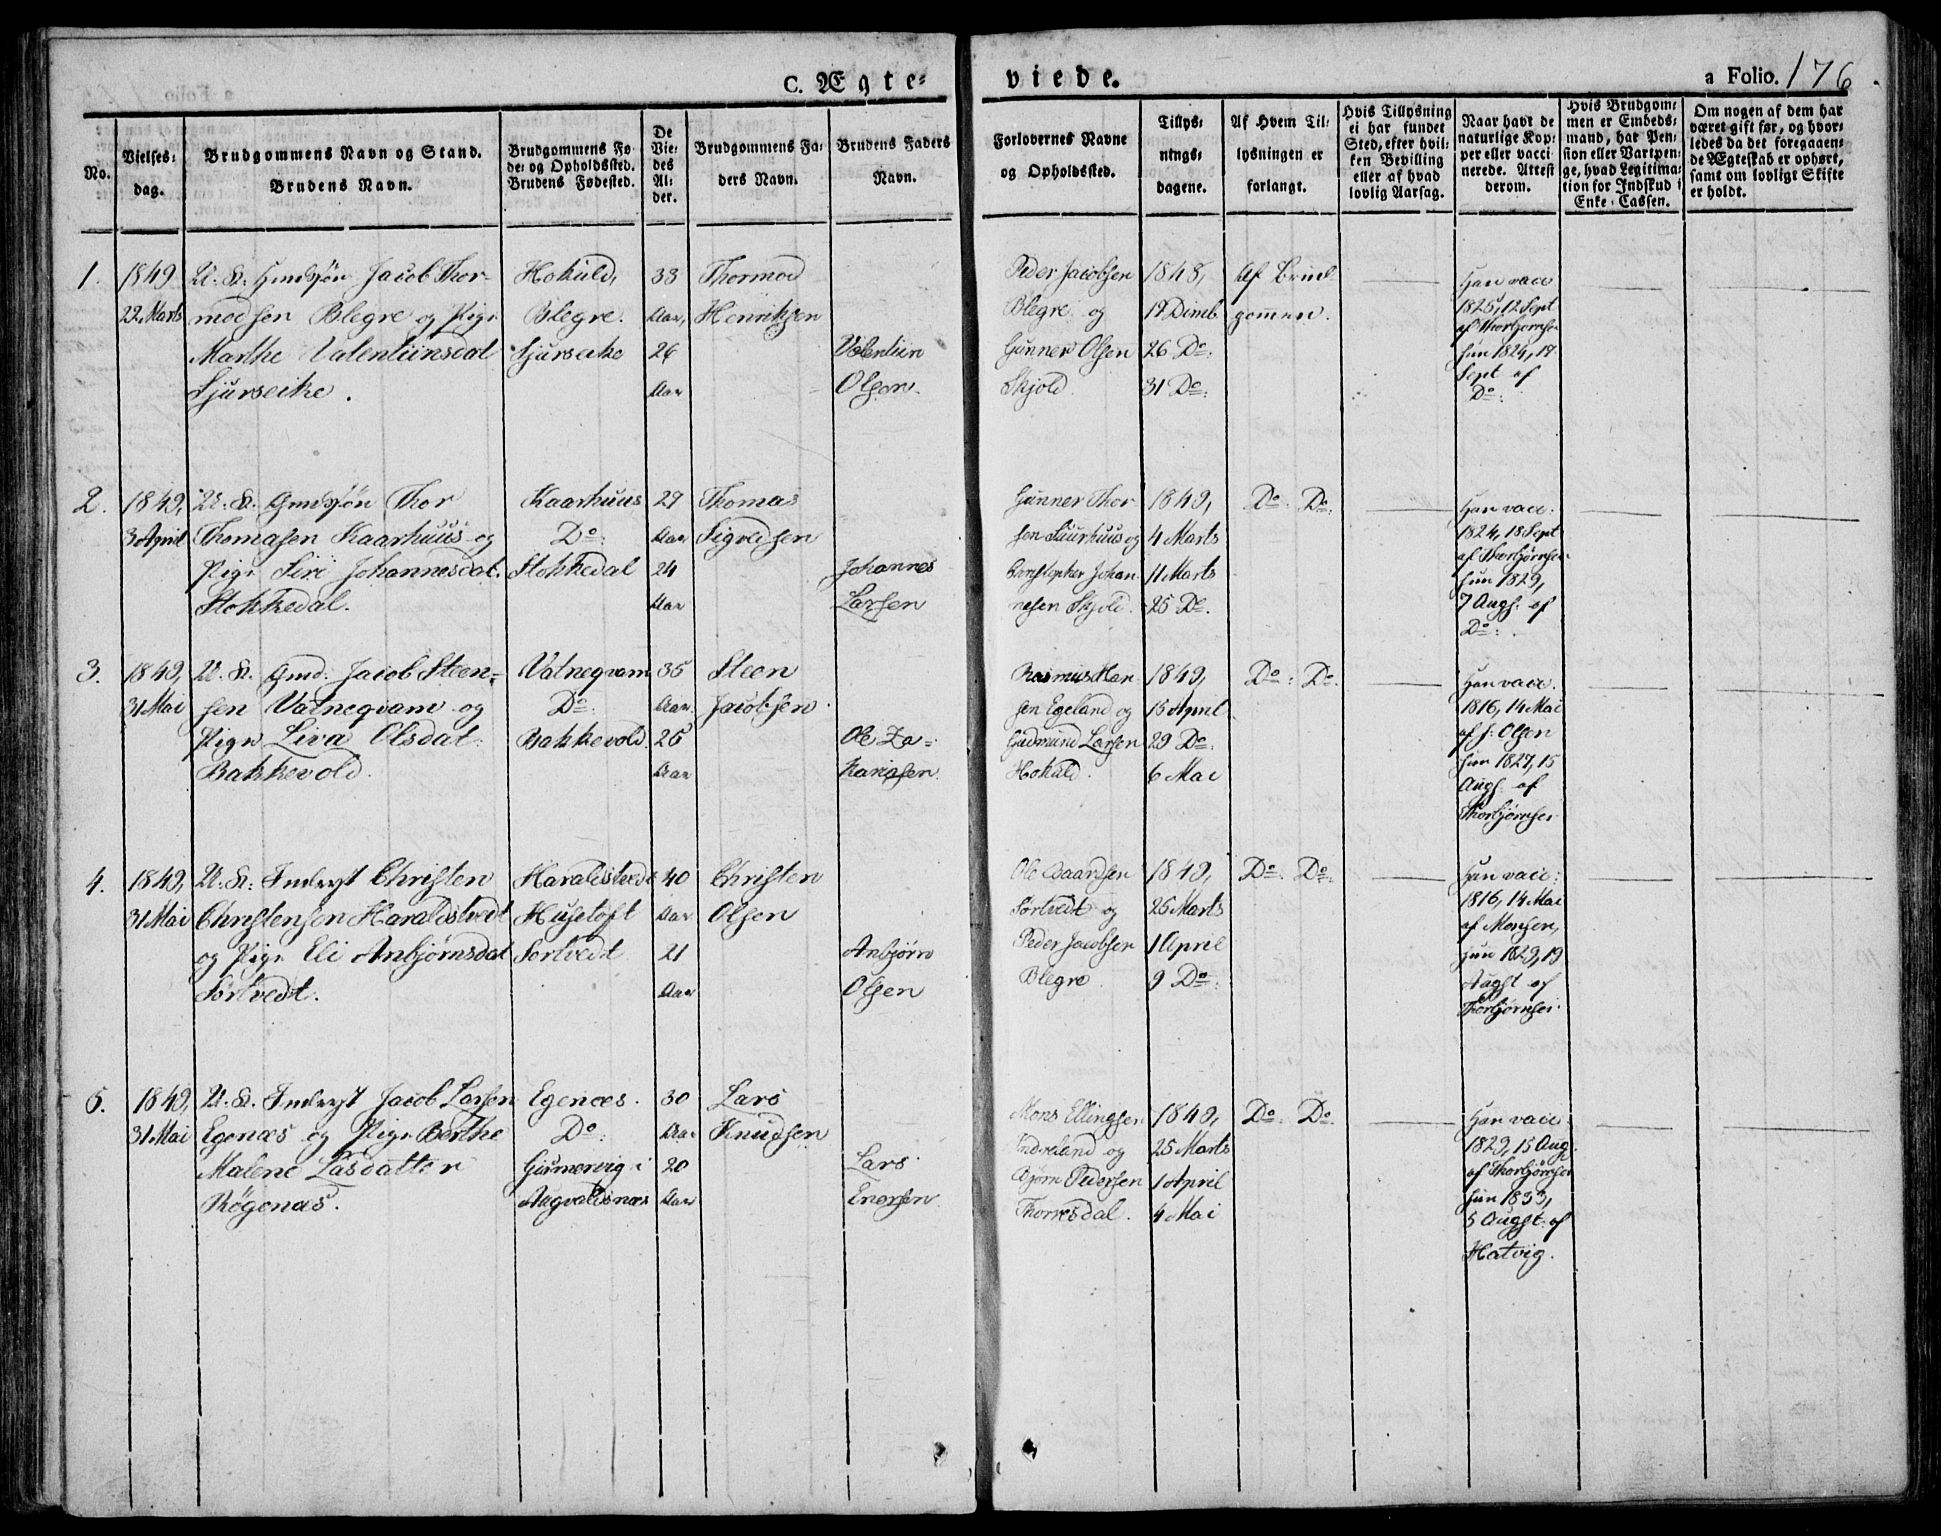 C. Ægte=
viede.
a Folio. 176
No.
Vielses=
dag.
Brudgommens Navn og Stand.
Brudens Navn.
Brudgommens Fø=
de= og Opholdssted.
Brudens Fødested.
De
Vie=
des
Al=
der.
Brudgommens Fa=
ders Navn.
Brudens Faders
Navn.
Forlovernes Navne
og Opholdssted.
Tillys=
nings=
dagene.
Af Hvem Til=
lysningen er
forlangt.
Hvis Tillysning
ei har fundet
Sted, efter hvil=
ken Bevilling
eller af hvad
lovlig Aarsag.
Naar havt de
naturlige Kop=
per eller vacci
nerede. Attest
derom.
Hvis Brudgom=
men er Embeds=
mand, har Pen=
sion eller Vartpen=
ge, hvad Legitima=
tion for Indskud i
Enke=Cassen.
Om nogen af dem har
været gift før, og hvor=
ledes da det foregaaen=
de Ægteskab er ophørt,
samt om lovligt Skifte
er holdt.
1.
1849
22 Marts
U. K. Gmdsøn Jacob Thor
modsen Blegre og Pige
Marthe Valentiinsdat
Sjurseike.
Hokuld,
Blegre.
Sjurseike
33
Aar,
26
Aar
Thormod
Henriksen
Valentiin
Olsen.
Peder Jacobsen
Blegre og
Gunner Olsen
Skjold
1848,
19 Dcmb
26 Do:
31 Do:
Af Brud
gommen.
Han vacc
1825, 12 Sept
af Thorbjørnse
hun 1824, 19
Sept af
Do:
2.
1849,
3 April
U. K. Gmdsøn Thor
Thomasen Kaarhuus og
Pige Siri Johannesdat.
Stokkedal.
Kaarhuus
Do:
Stokkedal
29
Aar
24
Aar
Thomas
Sigvedsen
Johannes
Larsen
Gunner Thor
sen Saurhuus og
Christopher Johan
nesen Skjold.
1849,
4 Marts
11 Marts
25 Do.
Do: Do:
Han vacc:
1824, 18 Sept
af Thorbjørnsen
hun 1829,
7 Augs. af
Do:
3.
1849,
31 Mai
U. K. Gmd: Jacob Steen=
sen Vatneqvam og
Pige Liva Olsdat:
Bakkevold.
Vatneqvam
Do:
Bakkevold.
35
Aar.
25
Aar
Steen
Jacobsen.
Ole Za=
kariasen.
Rasmus Han
sen Egeland og
Gudmund Larsen
Hokuld.
1849,
15 April
29 Do:
6 Mai
Do: Do.
Han vacc.
1816, 14 Mai
af J: Olsen
hun 1827, 15
Augs. af
Thorbjørnsen
4.
1849,
31 Mai
U. K: Inderst Christen
Christensen Haraldstvedt
og Pige Eli Anbjørnsdat
Sørtvedt.
Haraldstvedt
Husetoft
Sørtvedt
40
Aar
21
Aar
Christen
Olsen
Anbjørn
Olsen
Ole Baardsen
Sørtvedt og
Peder Jacobsen
Blegre
1849,
25 Marts
1 April
9 Do:
Do: Do:
Han vacc:
1816, 14 Mai
af Monsen,
hun 1829, 19
Augst af
Thorbjørnsen.
5.
1849,
31 Mai
U. K. Inderst Jacob Larsen
Egenæs og Pige Berthe
Malene Lasdatter
Røgenæs.
Egenæs.
Do:
Gismervig i
Augvaldsnæs
30
Aar
20
Aar
Lars
Knudsen
Lars
Enersen
Mons Ellingsen
Indreland og
Bjørn Pedersen
Thorresdal.
1849,
25 Marts
1 April
4 Mai
Do: Do.
Han vacc:
1829, 15 Aug.
af Thorbjørnsen
hun 1833,
5 Augst. af
Hatvig.